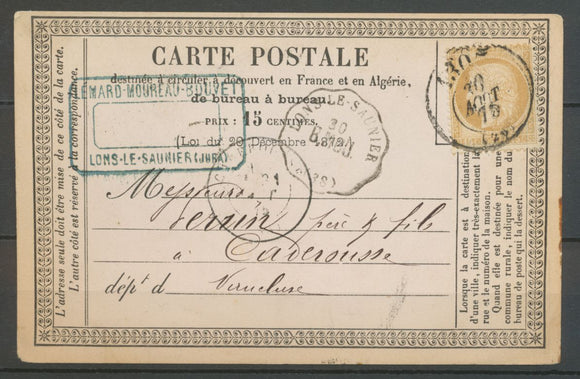 CARTE POSTALE
destinée à circuler à découvert en France et en Algérie,
de bureau à bureau.
PRIX : 15 CENTIMES.
(Loi du 20 Décembre 1872.)
MOUREAU-BOUVET
LONS-LE-SAUNIER (JURA)
LONS-LE-SAUNIER
30
LYON
30
AOUT
75
Messieurs
père & fils
à Caderousse
dépt d Vaucluse
L'adresse seule doit être mise de ce côté de la carte.
L'autre côté est réservé à la correspondance.
Lorsque la carte est à destination
d'une ville, indiquer très-exactement la
rue et le numéro de la maison.
Quand elle est destinée à une
commune rurale, indiquer le nom du
bureau de poste qui la dessert.